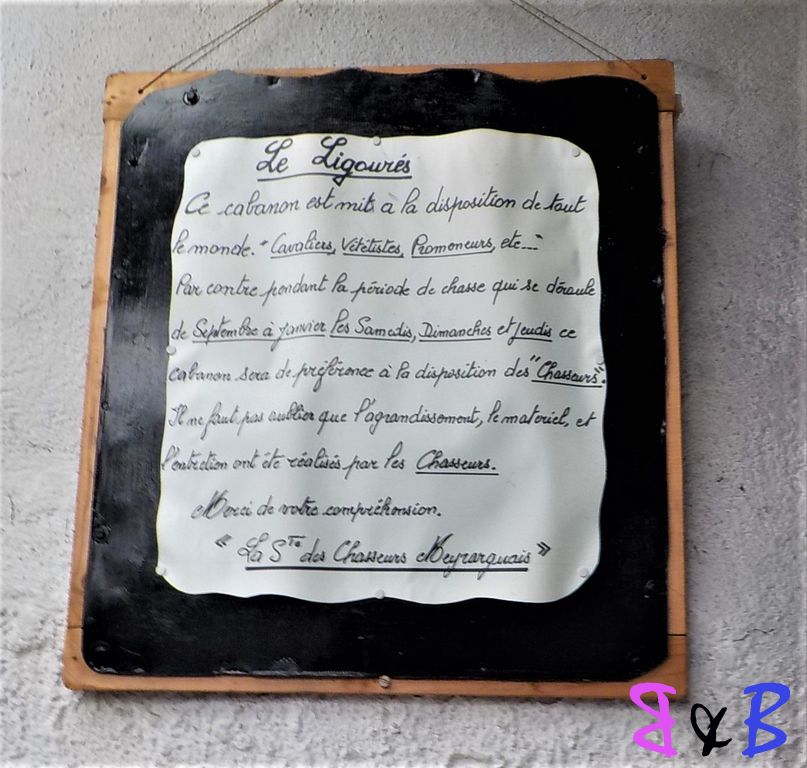 Le Ligourés
Ce cabanon est mis à la disposition de tout
le monde. " Cavaliers, Vététistes, Promoneurs, etc..."
Par contre pendant la période de chasse qui se déroule
de Septembre à janvier les Samedis, Dimanches et Jeudis ce
cabanon sera de préférence à la disposition des "Chasseurs".
Il ne faut pas oublier que l'agrandissement, le materiel, et
l'entretien ont été réalisés par les Chasseurs.
Merci de votre compréhension.
« La Sté des Chasseurs Meyrarguais »
B & B